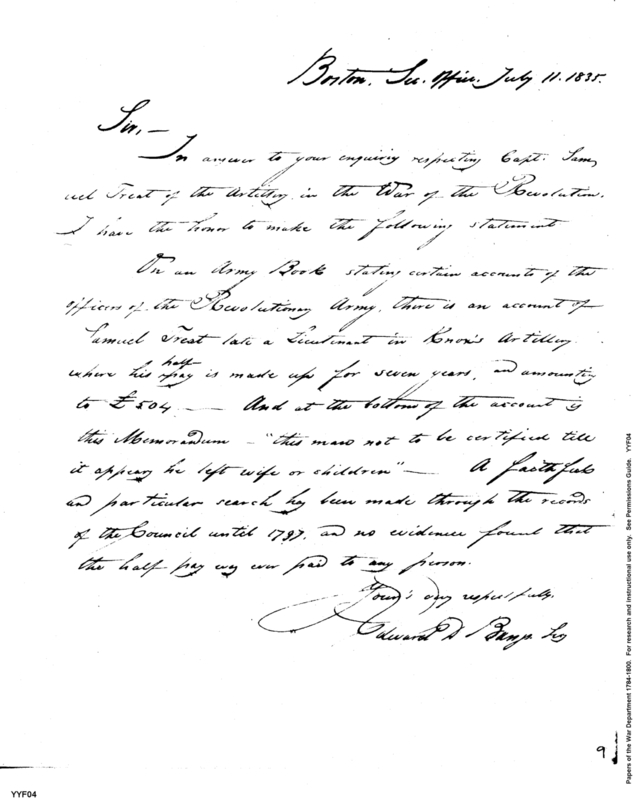 Boston. Sec. Office. July 11. 1835.
Sir, —
In answer to your enquiry respecting Capt. Sam
uel Treat of the Artillery in the War of the Revolution.
I have the honor to make the following statement
On an Army Book stating certain accounts of the
officers of the Revolutionary Army, there is an account of
Samuel Treat late a Lieutenant in Knox's Artillery.
where his half pay is made up for seven years, and amounting
to £504 — And at the bottom of the account is
this Memorandum — "this mans not to be certified till
it appears he left wife or children" — A faithful
and particular search has been made through the records
of the Council until 1797, and no evidence found that
the half pay was ever paid to any person.
Your's very respectfully.
Edward D Bangs Sec
9
YYF04
Papers of the War Department 1784-1800. For research and instructional use only. See Permissions Guide. YYF04